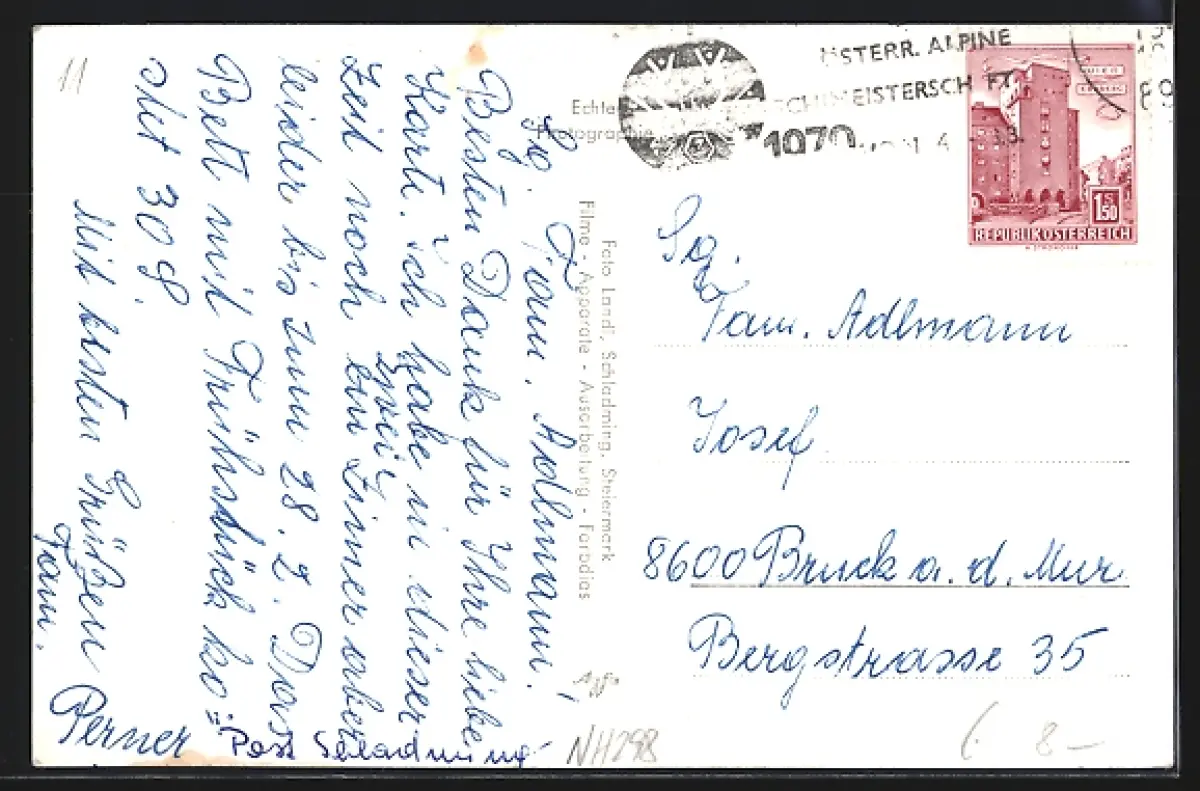 11
Sg. Fam. Adlmann!
Besten Dank für Ihre liebe
Karte. Ich habe in dieser
Zeit noch ein zwei Zimer aber
leider bis zum 28. 2. Das
Bett mit Frühstück ko=
stet 30 S.
Mit besten Grüßen
Fam.
Perner
Post Schladming
NH298
Echte
Photographie
Foto Landl, Schladming, Steiermark
Filme - Apparate - Ausarbeitung - Farbdias
ÖSTERR. ALPINE
SCHIMEISTERSCH FT
1070
WIEN
REPUBLIK ÖSTERREICH
1S50
Sg.
Fam. Adlmann
Josef
8600 Bruck a. d. Mur.
Bergstrasse 35
8 -